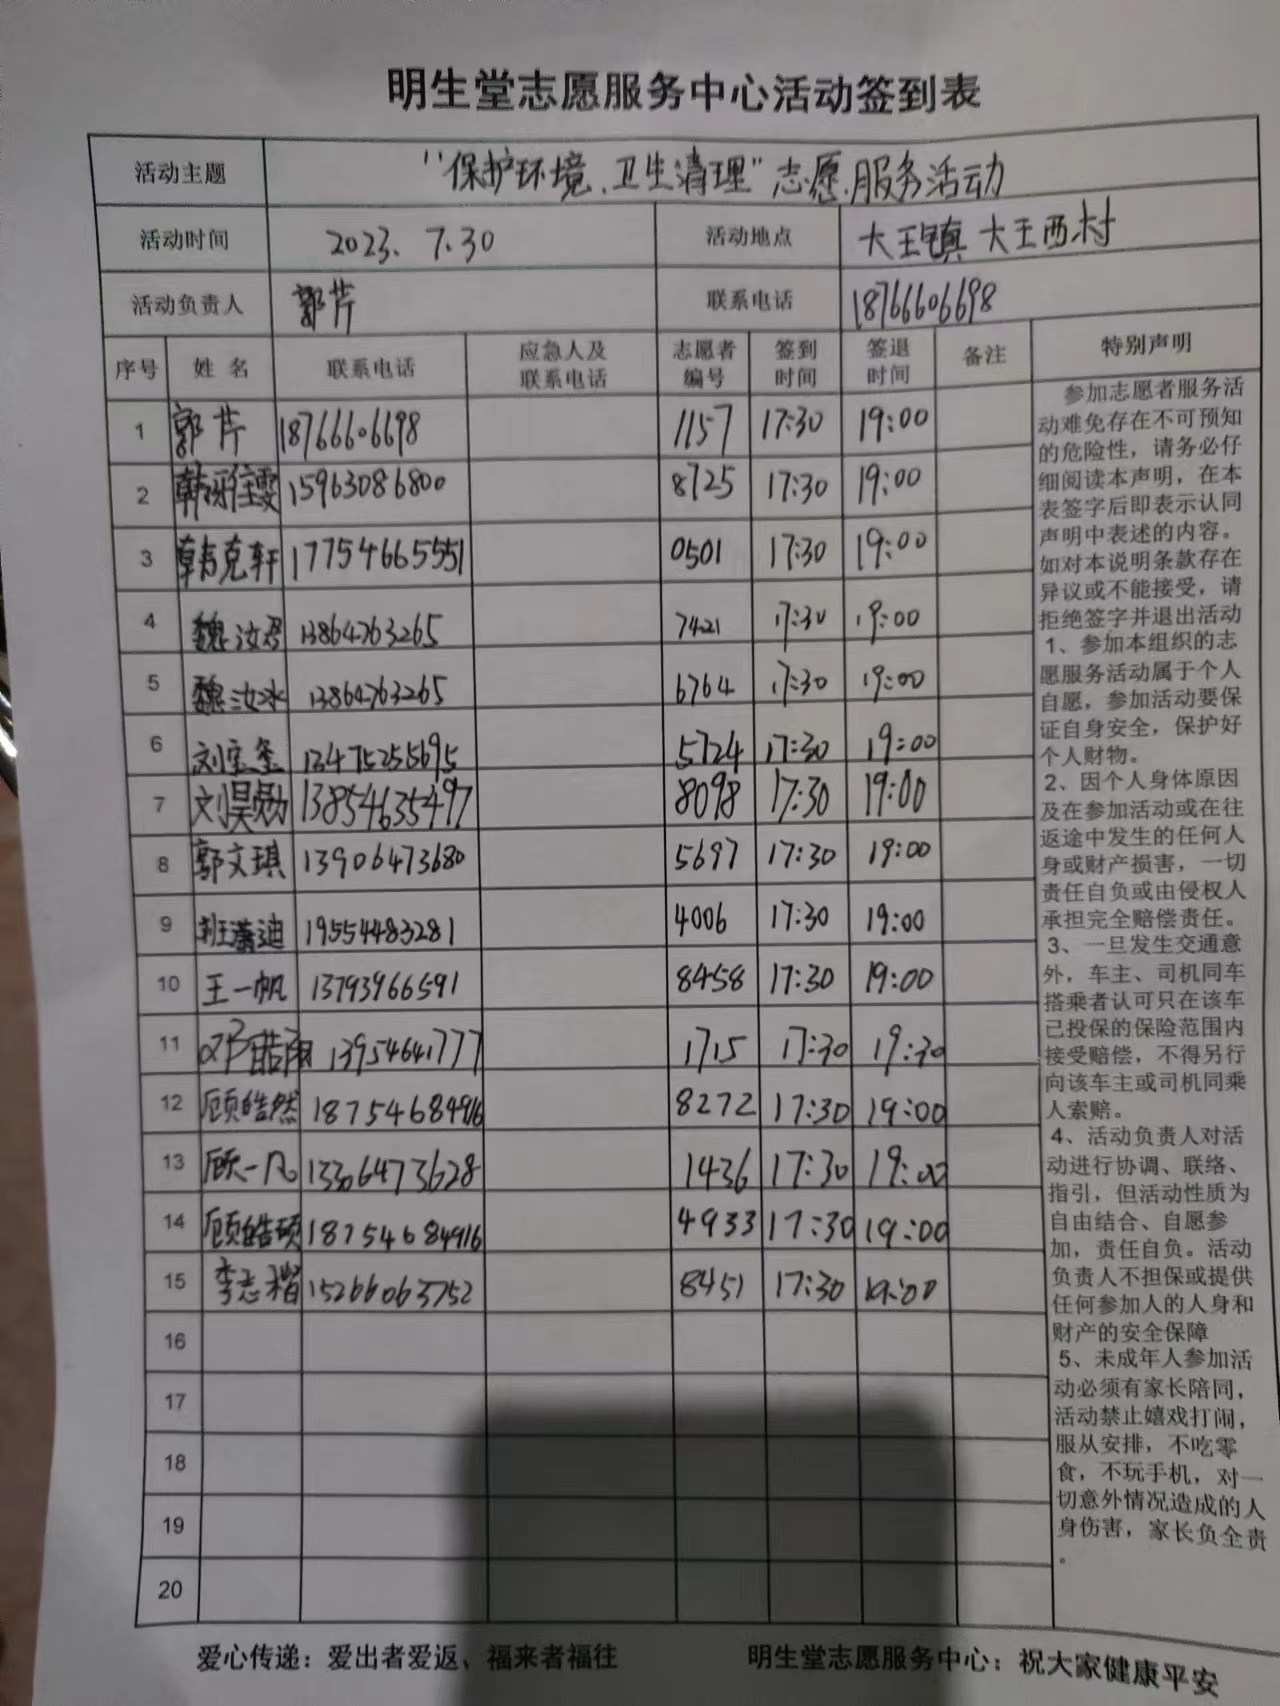 明生堂志愿服务中心活动签到表
活动主题 “保护环境、卫生清理”志愿服务活动
活动时间 2023. 7.30 活动地点 大王镇 大王西村
活动负责人 郭芹 联系电话 18766606698
序号 姓名 联系电话 应急人及联系电话 志愿者编号 签到时间 签退时间 备注 特别声明
1 郭芹 18766606698 1157 17:30 19:00
2 韩雅雯 15963086800 8725 17:30 19:00
3 韩克轩 17754665551 0501 17:30 19:00
4 魏汝君 13864763265 7421 17:30 19:00
5 魏汝冰 13864763265 6764 17:30 19:00
6 刘宝玺 13475255695 5724 17:30 19:00
7 刘昊勋 13854635497 8098 17:30 19:00
8 郭文琪 13906473680 5697 17:30 19:00
9 班潇迪 19554483281 4006 17:30 19:00
10 王一帆 13793966591 8458 17:30 19:00
11 邓皓 13954641777 1715 17:30 19:30
12 顾皓然 18754684916 8272 17:30 19:00
13 顾一凡 13306473628 1436 17:30 19:00
14 顾皓硕 18754684916 4933 17:30 19:00
15 李志楷 15266063752 8451 17:30 19:00
16
17
18
19
20
参加志愿者服务活
动难免存在不可预知
的危险性，请务必仔
细阅读本声明，在本
表签字后即表示认同
声明中表述的内容。
如对本说明条款存在
异议或不能接受，请
拒绝签字并退出活动
1、参加本组织的志
愿服务活动属于个人
自愿，参加活动要保
证自身安全，保护好
个人财物。
2、因个人身体原因
及在参加活动或在往
返途中发生的任何人
身或财产损害，一切
责任自负或由侵权人
承担完全赔偿责任。
3、一旦发生交通意
外，车主、司机同车
搭乘者认可只在该车
已投保的保险范围内
接受赔偿，不得另行
向该车主或司机同乘
人索赔。
4、活动负责人对活
动进行协调、联络、
指引，但活动性质为
自由结合、自愿参
加，责任自负。活动
负责人不担保或提供
任何参加人的人身和
财产的安全保障
5、未成年人参加活
动必须有家长陪同，
活动禁止嬉戏打闹，
服从安排，不吃零
食，不玩手机，对一
切意外情况造成的人
身伤害，家长负全责
。
爱心传递：爱出者爱返、福来者福往 明生堂志愿服务中心：祝大家健康平安